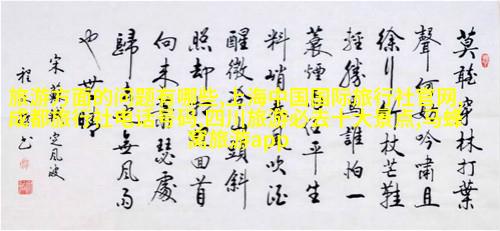 旅游方面的问题有哪些,上海中国国际旅行社官网,
成都旅行社电话号码,四川旅游必去十大景点,马蜂
窝旅游app
莫聽穿林打葉
聲何妨吟嘯且
徐行竹杖芒鞋
輕勝誰怕一
蓑煙雨任平生
料峭春風吹酒
醒微冷山頭斜
照却相迎回首
向来蕭瑟處
歸去無風雨
也無晴
宋蘇軾定風波
程